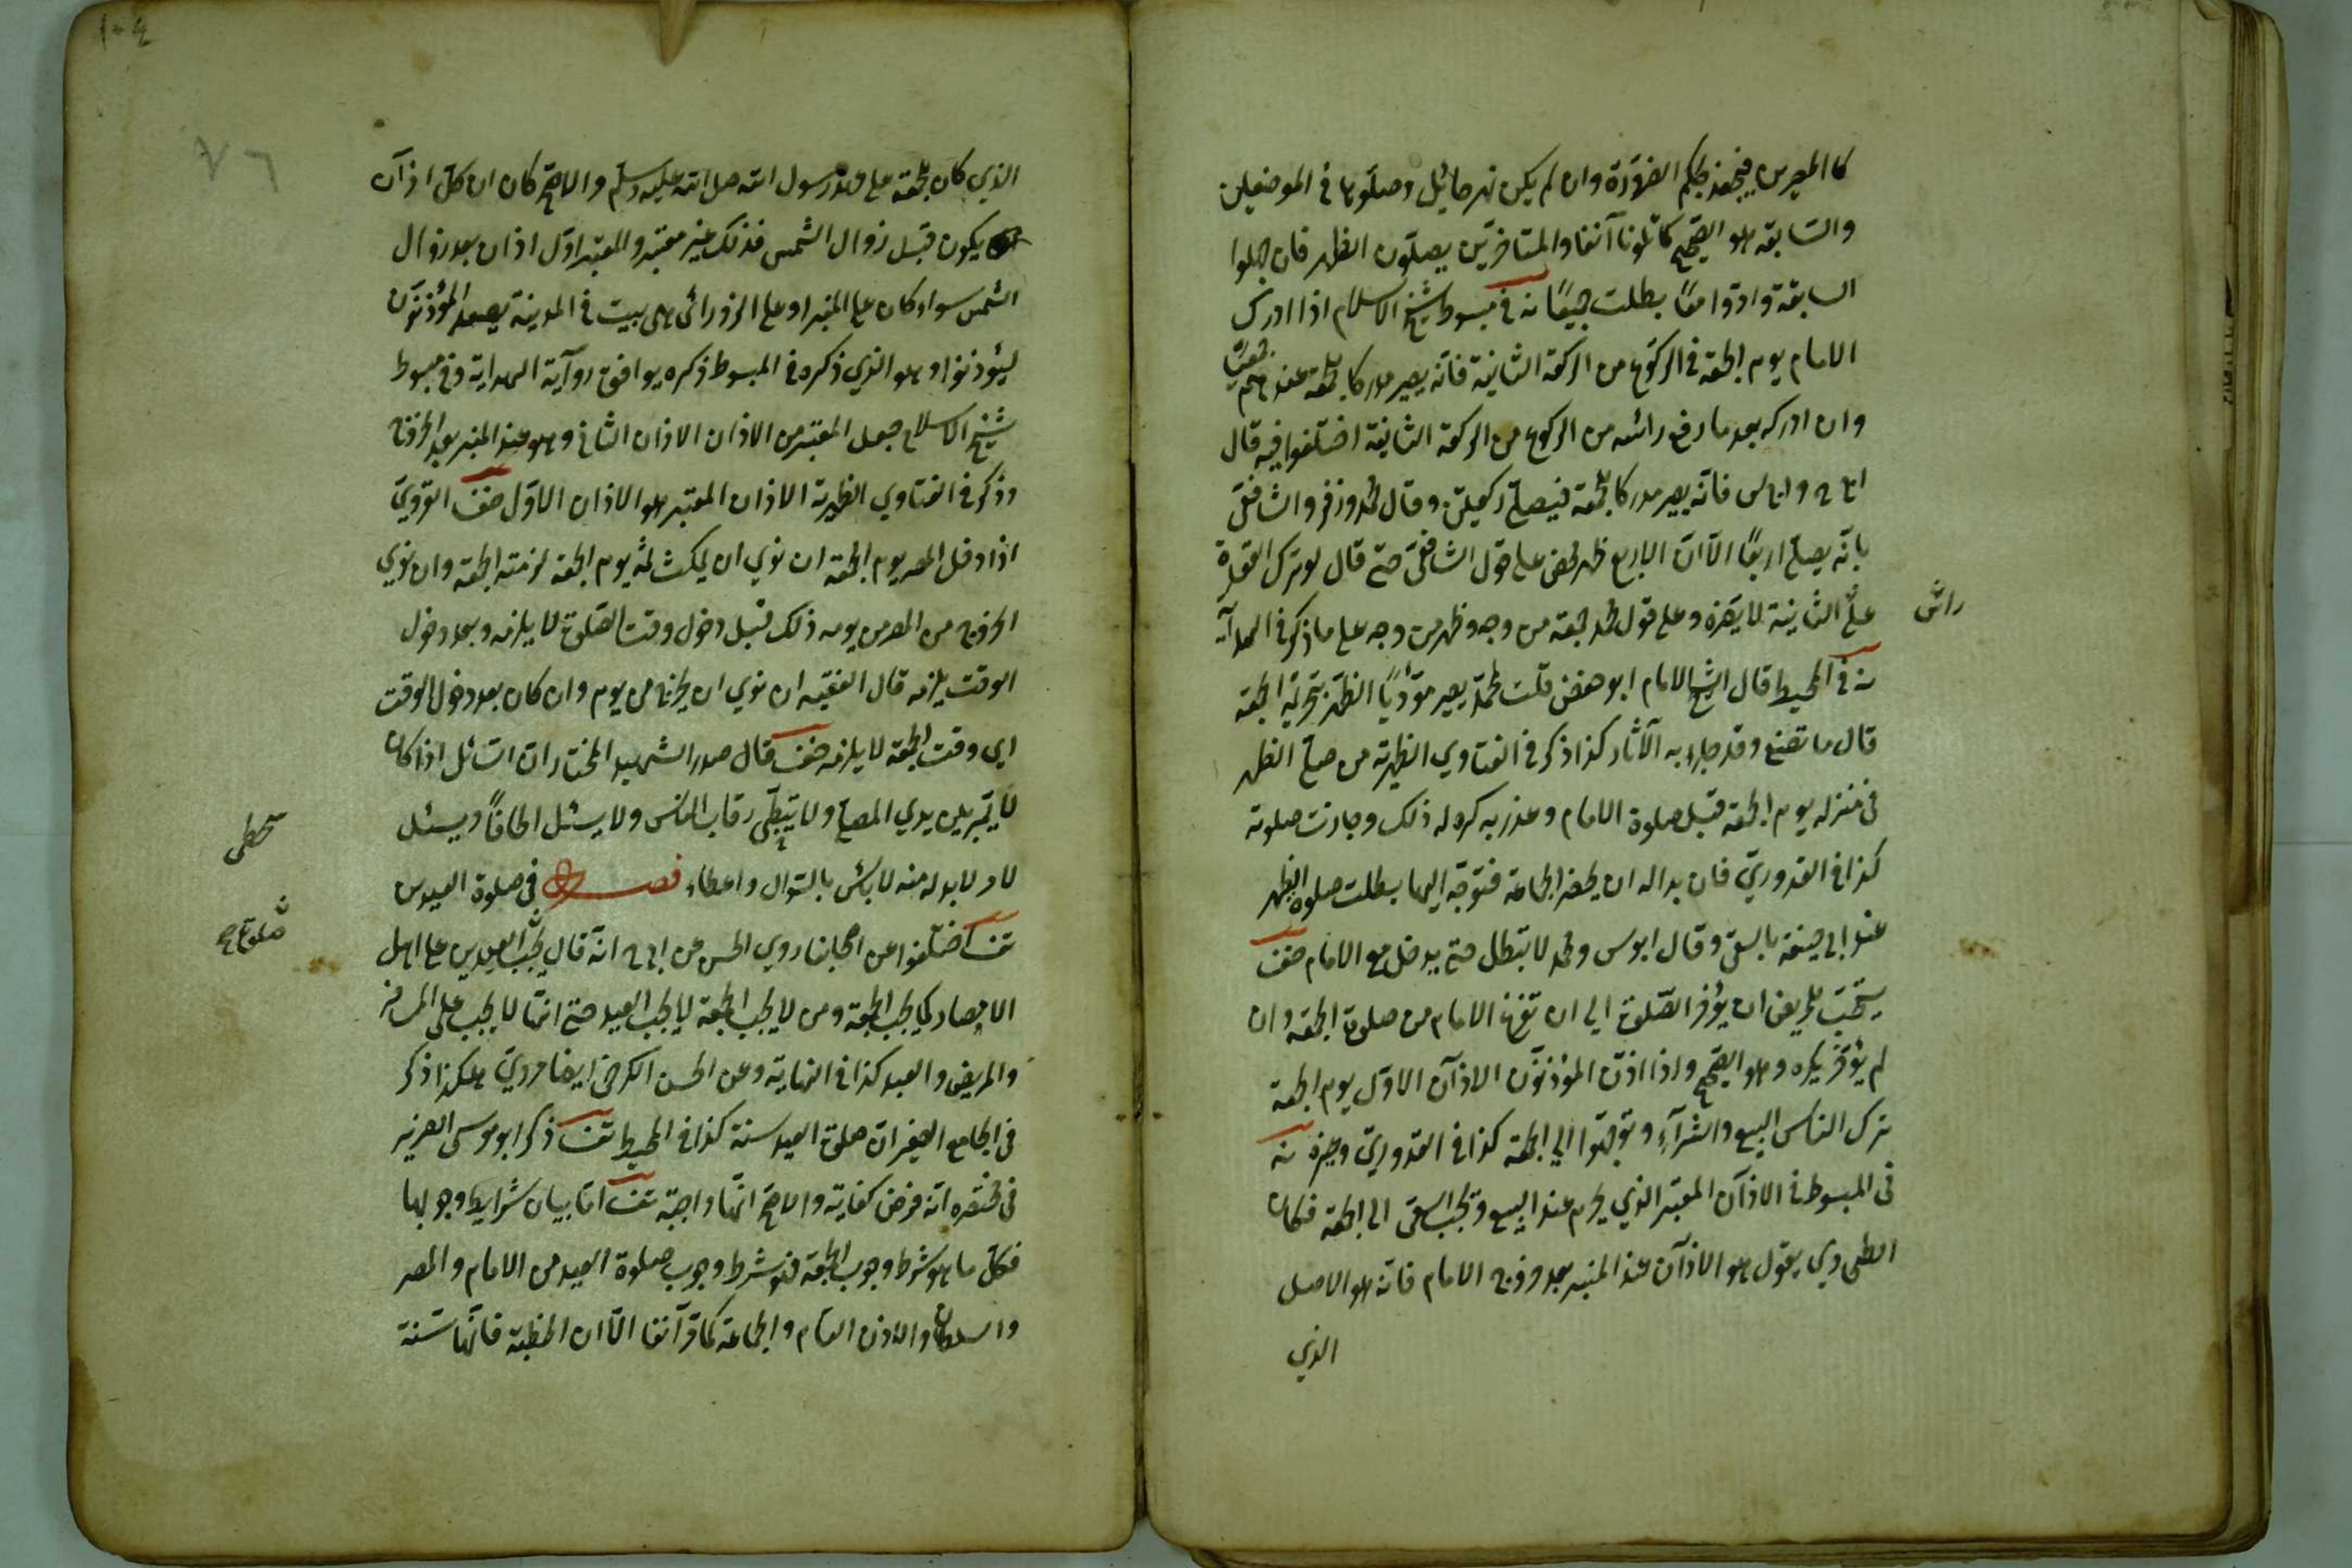 كالمصرين فيجوز بحكم الضرورة وان لم يكن نهر حائل وصلوها فى الموضعين
والسابقة هو الصحيح كما تلونا آنفا والمتأخرين يصلون الظهر فان جهلوا
السابقة وادّوا معًا بطلت جميعًا نه فى مبسوط شيخ الاسلام اذا ادرك
الامام يوم الجمعة فى الركوع من الركعة الثانية فانّه يصير مدركا للجمعة عندهم جميعًا
وان ادركه بعد ما رفع رائسه من الركوع من الركعة الثانية اختلفوا فيه قال
اب‍ح واب‍س فانّه يصير مدركا للجمعة فيصلى ركعتين وقال محمد وزفر والشافعى
بانّه يصلى اربعًا الّا انّ الاربع ظهر محض على قول الشافعى حتى قال لو ترك القعدة
على الثانية لا يضره وعلى قول محمد جمعة من وجه وظهر من وجه على ما ذكر فى الهداية
راس
نه فى المحيط قال الشيخ الامام ابو حفص قلت لمحمد يصير مؤدّيًا الظهر بتحريمة الجمعة
قال ما تصنع وقد جاء به الآثار كذا ذكر فى الفتاوي الظهيرية من صلى الظهر
فى منزله يوم الجمعة قبل صلوة الامام وعذر به كره له ذلك وجازت صلوته
كذا فى القدوريّ فان بدا له ان يحضر الجماعة فتوجّه اليها بطلت صلوة الظهر
عند ابى حنيفة بالسعى وقال ابوس ومحمد لا تبطل حتى يدخل مع الامام صف
يستحبّ للمريض ان يؤخر الصّلوة الي ان تفرغ الامام من صلوة الجمعة وان
لم يؤخر يكره وهو الصّحيح واذا اذّن المؤذنون الاذان الاول يوم الجمعة
ترك الناس البيع والشرآء وتوجّهوا الي الجمعة كذا فى القدوريّ وغيره نه
فى المبسوط فى الاذان المعتبر الذي يحرم عند البيع وتجب السعى الى الجمعة فكان
الطحاوي يقول هو الاذان عند المنبر بعد خروج الامام فانّه هو الاصل
الذي
١٠٤
٧٦
الذي كان للجمعة على عهد رسول الله صلى الله عليه وسلم والاصح كان ان كل اذان
يكون قبل زوال الشمس فذلك غير معتبر والمعتبر اوّل اذان بعد زوال
الشمس سواء كان على المنبر او على الزورائ هى بيت فى المدينة يصعد المؤذنون
ليؤذنوا وهو الذي ذكره فى المبسوط ذكره يوافق رواية الهداية وفى مبسوط
شيخ الاسلام جعل المعتبر من الاذان الاذان الثانى وهو عند المنبر بعد الخروج
وذكر فى الفتاوي الظهيرية الاذان المعتبر هو الاذان الاوّل صف القرويّ
اذا دخل المصر يوم الجمعة ان نوي ان يمكث ثمّه يوم الجمعة لزمته الجمعة وان نوي
الخروج من المصر من يومه ذلك قبل دخول وقت الصّلوة لا يلزمه وبعد دخول
الوقت يلزمه قال الفقيه ان نوي ان يخرج من يوم وان كان بعد دخول الوقت
اي وقت الجمعة لا يلزمه صف قال صدر الشهيد المختار ان السّائل اذا كان
لا يمرّ بين يدي المصلى ولا يتخطّى رقاب الناس ولا يسئل الحافًا ويسئل
تخطى
لامر لابد له منه لا بائس بالسّوال واعطاء فصل فى صلوة العيدين
تف اختلفوا عن اصحابنا روي الحسن عن اب‍ح انّه قال تجب العيدين على اهل
صلوة
الامصار كما يجب الجمعة ومن لا يجب الجمعة لا يجب العيد حتى انّما لا يجب على المسافر
والمريض والعبد كذا فى النهاية وعن الحسن الكرخى ايضا مرويّ هكذا ذكر
فى الجامع الصغير ان صلوة العيد سنة كذا فى المحيط تف ذكر ابو موسى الضرير
فى مختصره انّه فرض كفاية والاصح انّها واجبة تف امّا بيان شرايط وجوبها
فكل ما هو شرط وجوب الجمعة فهو شرط وجوب صلوة العيد من الامام والمصر
والسلطان والاذن العام والجماعة كما مرّ آنفا الّا ان الخطبة فانّها سنة